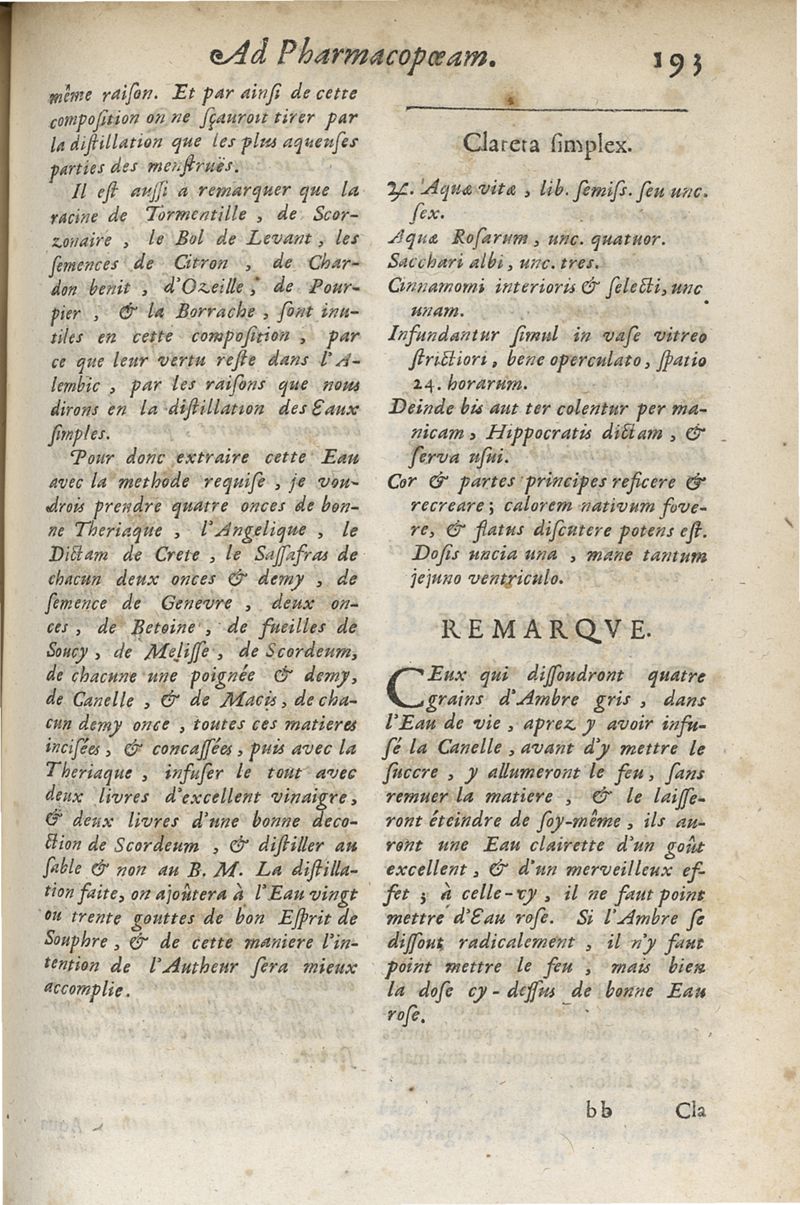 Ad Pharmacopœam. 193
même raiſon. Et par ainſi de cette
compoſition on ne ſçauroit tirer par
la diſtillation que les plus aqueuſes
parties des menſtruës.
Il eſt auſſi a remarquer que la
racine de Tormentille , de Scor-
zonaire , le Bol de Levant , les
ſemences de Citron , de Char-
don benit , d'Ozeille , de Pour-
pier , & la Borrache , ſont inu-
tiles en cette compoſition , par
ce que leur vertu reſte dans l'A-
lembic , par les raiſons que nous
dirons en la diſtillation des Eaux
ſimples.
Pour donc extraire cette Eau
avec la methode requiſe , je vou-
drois prendre quatre onces de bon-
ne Theriaque , l'Angelique , le
Dictam de Crete , le Saſſafras de
chacun deux onces & demy , de
ſemence de Genevre , deux on-
ces , de Betoine , de fueilles de
Soucy , de Meliſſe , de Scordeum,
de chacune une poignée & demy,
de Canelle , & de Macis , de cha-
cun demy once , toutes ces matieres
inciſées , & concaſſées , puis avec la
Theriaque , infuſer le tout avec
deux livres d'excellent vinaigre,
& deux livres d'une bonne deco-
ction de Scordeum , & diſtiller au
ſable & non au B. M. La diſtilla-
tion faite, on ajoûtera à l'Eau vingt
ou trente gouttes de bon Eſprit de
Souphre , & de cette maniere l'in-
tention de l'Autheur ſera mieux
accomplie.
Clareta ſimplex.
℞. Aquæ vitæ , lib. ſemiſs. ſeu unc.
ſex.
Aquæ Roſarum , unc. quatuor.
Sacchari albi , unc. tres.
Cinnamomi interioris & ſelecti, unc
unam.
Infundantur ſimul in vaſe vitreo
ſtrictiori , bene operculato , ſpatio
24. horarum.
Deinde bis aut ter colentur per ma-
nicam , Hippocratis dictam , &
ſerva uſui.
Cor & partes principes reficere &
recreare ; calorem nativum fove-
re, & flatus diſcutere potens eſt.
Doſis uncia una , mane tantum
jejuno ventriculo.
REMARQVE.
CEux qui diſſoudront quatre
grains d'Ambre gris , dans
l'Eau de vie , aprez y avoir infu-
ſé la Canelle , avant d'y mettre le
ſuccre , y allumeront le feu , ſans
remuer la matiere , & le laiſſe-
ront éteindre de ſoy-même , ils au-
ront une Eau clairette d'un goût
excellent , & d'un merveilleux ef-
fet ; à celle-cy , il ne faut point
mettre d'Eau roſe. Si l'Ambre ſe
diſſout radicalement , il n'y faut
point mettre le feu , mais bien
la doſe cy-deſſus de bonne Eau
roſe.
bb Cla